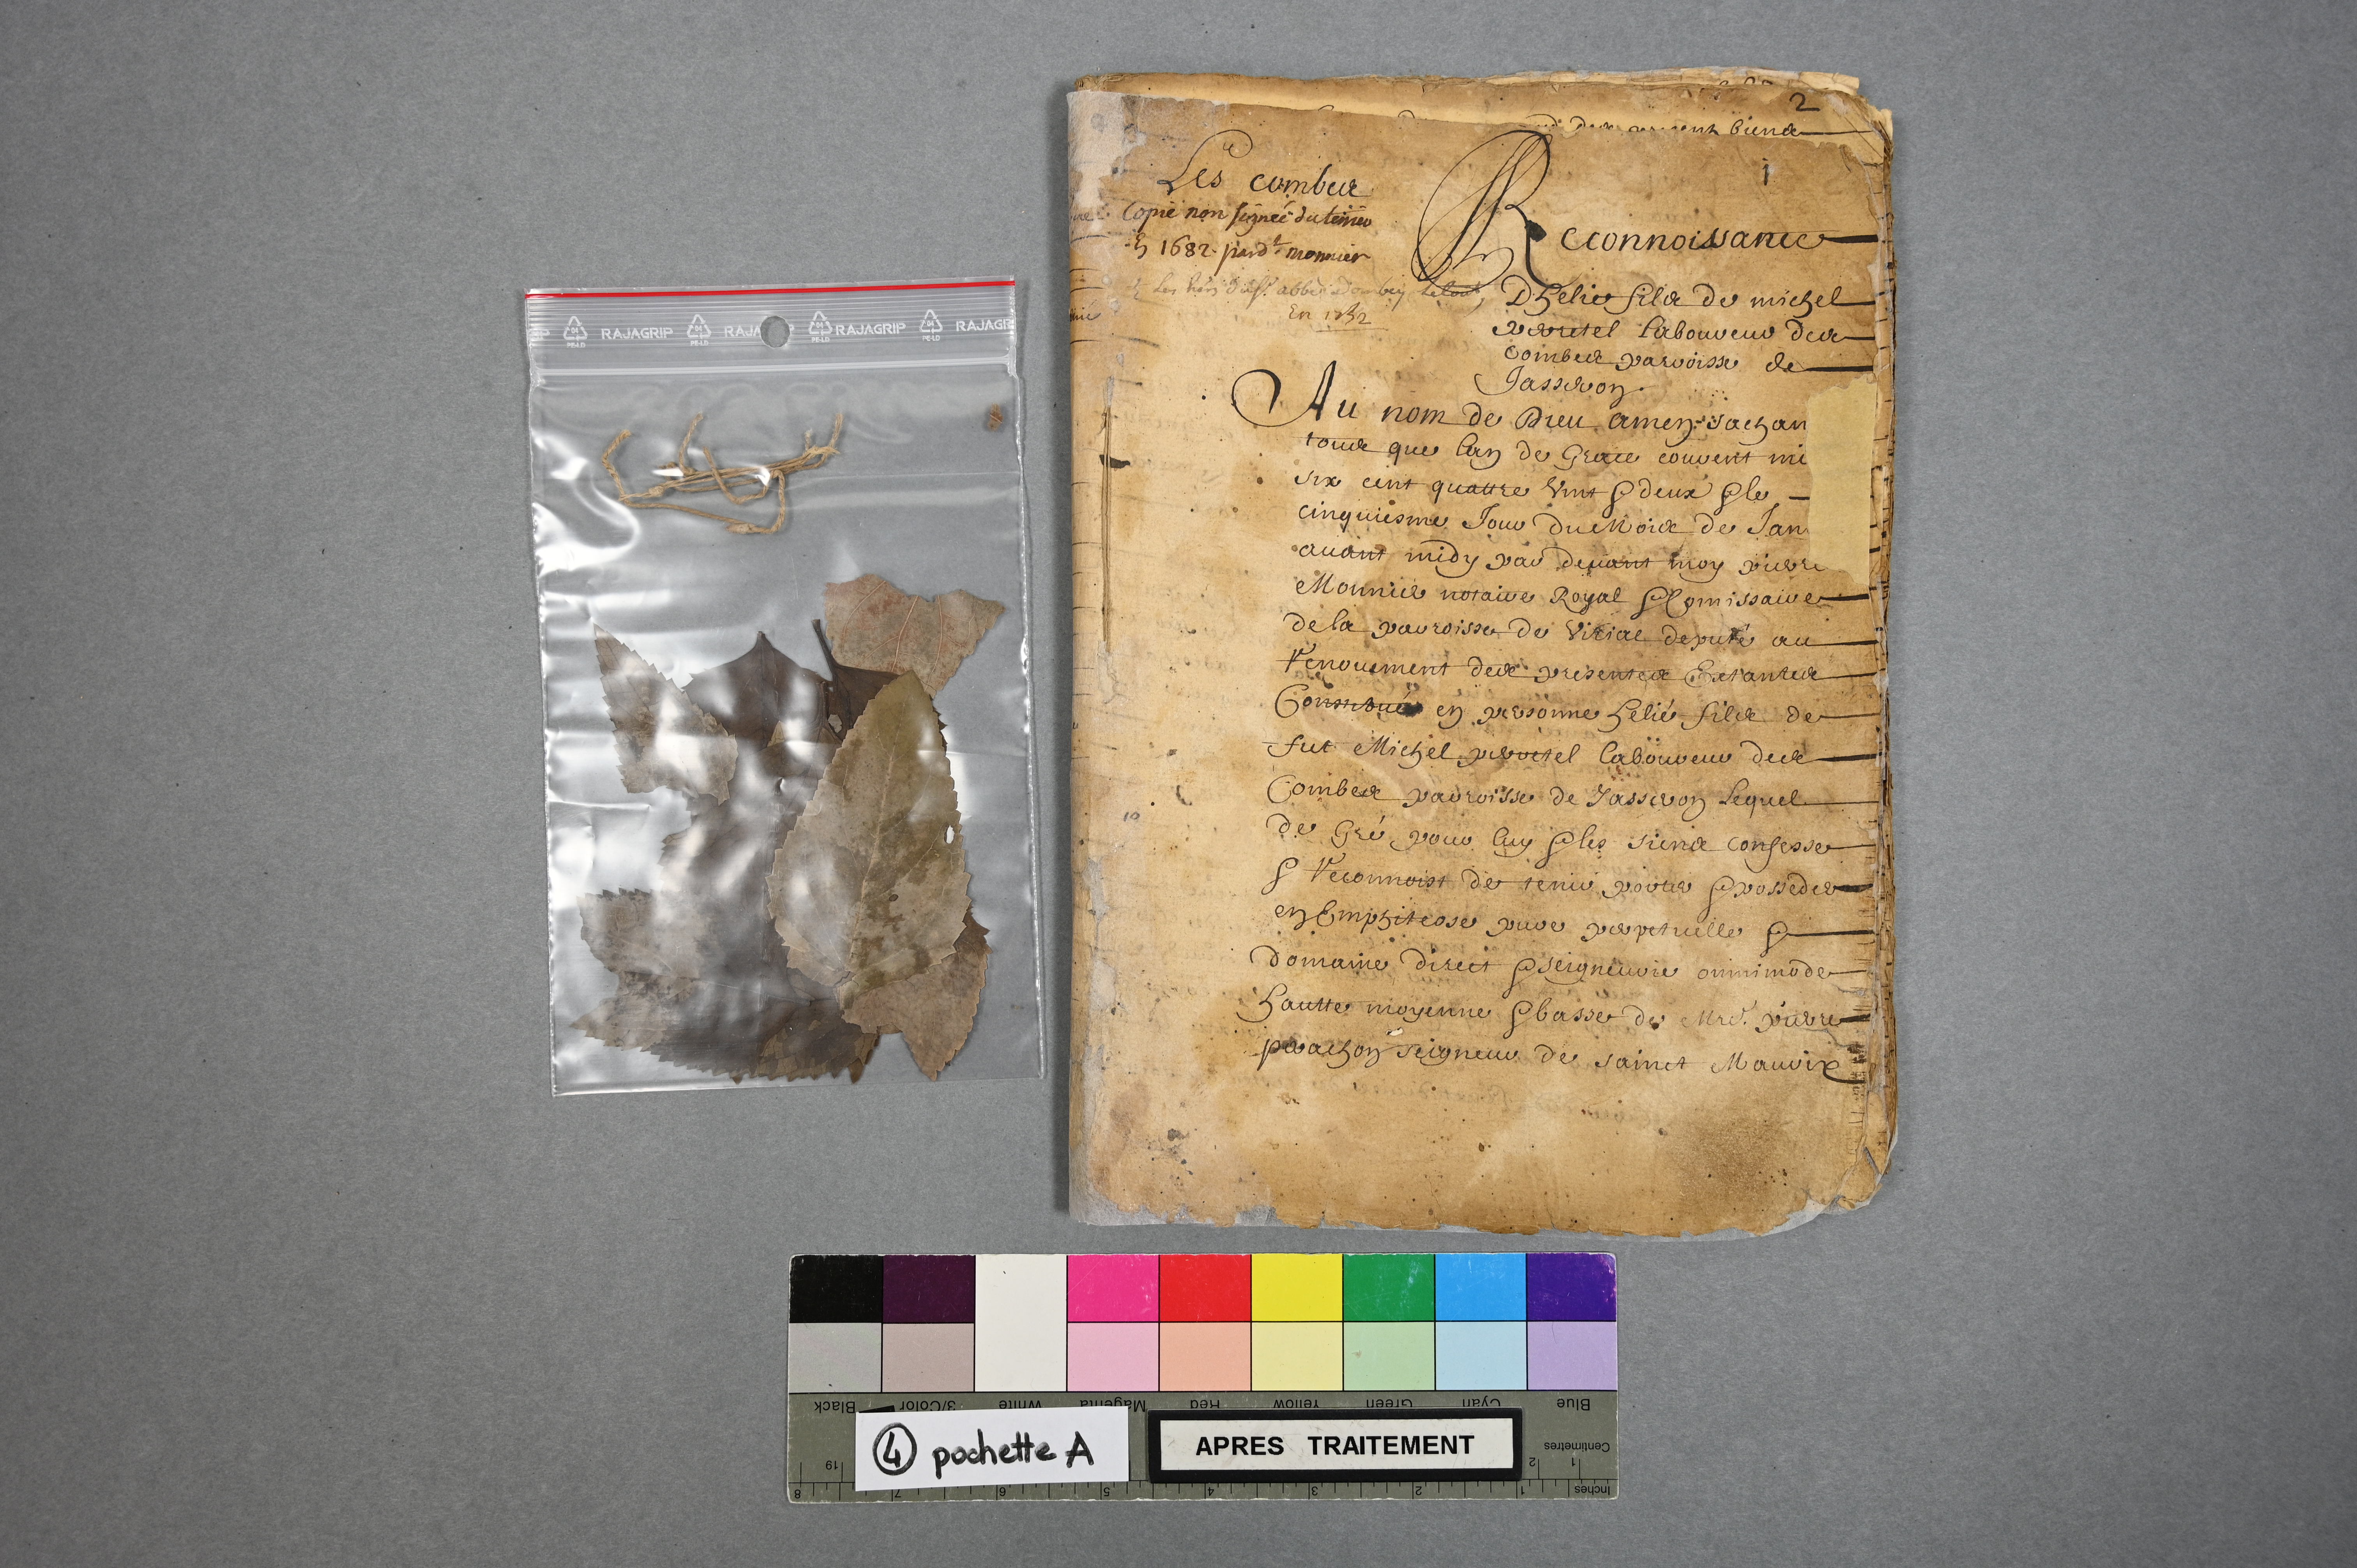 RAJAGRIP RAJAGRIP RAJAGRIP
PE-LD PE-LD PE-LD PE-LD
2
biens
1
Les combes
Copie non signée du terrier
1682 par dt monnier
En
Reconnoissance
D'helie fils de michel
perretel laboureur des
combes parroisse de
Jasseron
Au nom de Dieu amen sachan
tous que lan de Grace courent mi
six cent quattre vint & deux & le
cinquiesme Jour du Mois de Jan
avant midy par devant moy pierre
Monnier notaire Royal & Comissaire
de la parroisse de Viriac deputé au
renouement des presentes Extantes
Constitué en personne helie fils de
fut Michel perretel laboureur des
Combes parroisse de Jasseron Lequel
de Gré pour luy & les siens confesse
& reconnoist de tenir porter & posseder
en Emphiteose pure perpetuelle &
domaine direct & seigneurie omnimode
hautte moyenne & basse de Mre. pierre
perachon seigneur de sainct Maurix
Black 3/Color White Magenta Red Yellow Green Cyan Blue
4 pochette A
APRES TRAITEMENT
Centimetres
19 2 1
8 7 6 5 4 3 2 1 Inches